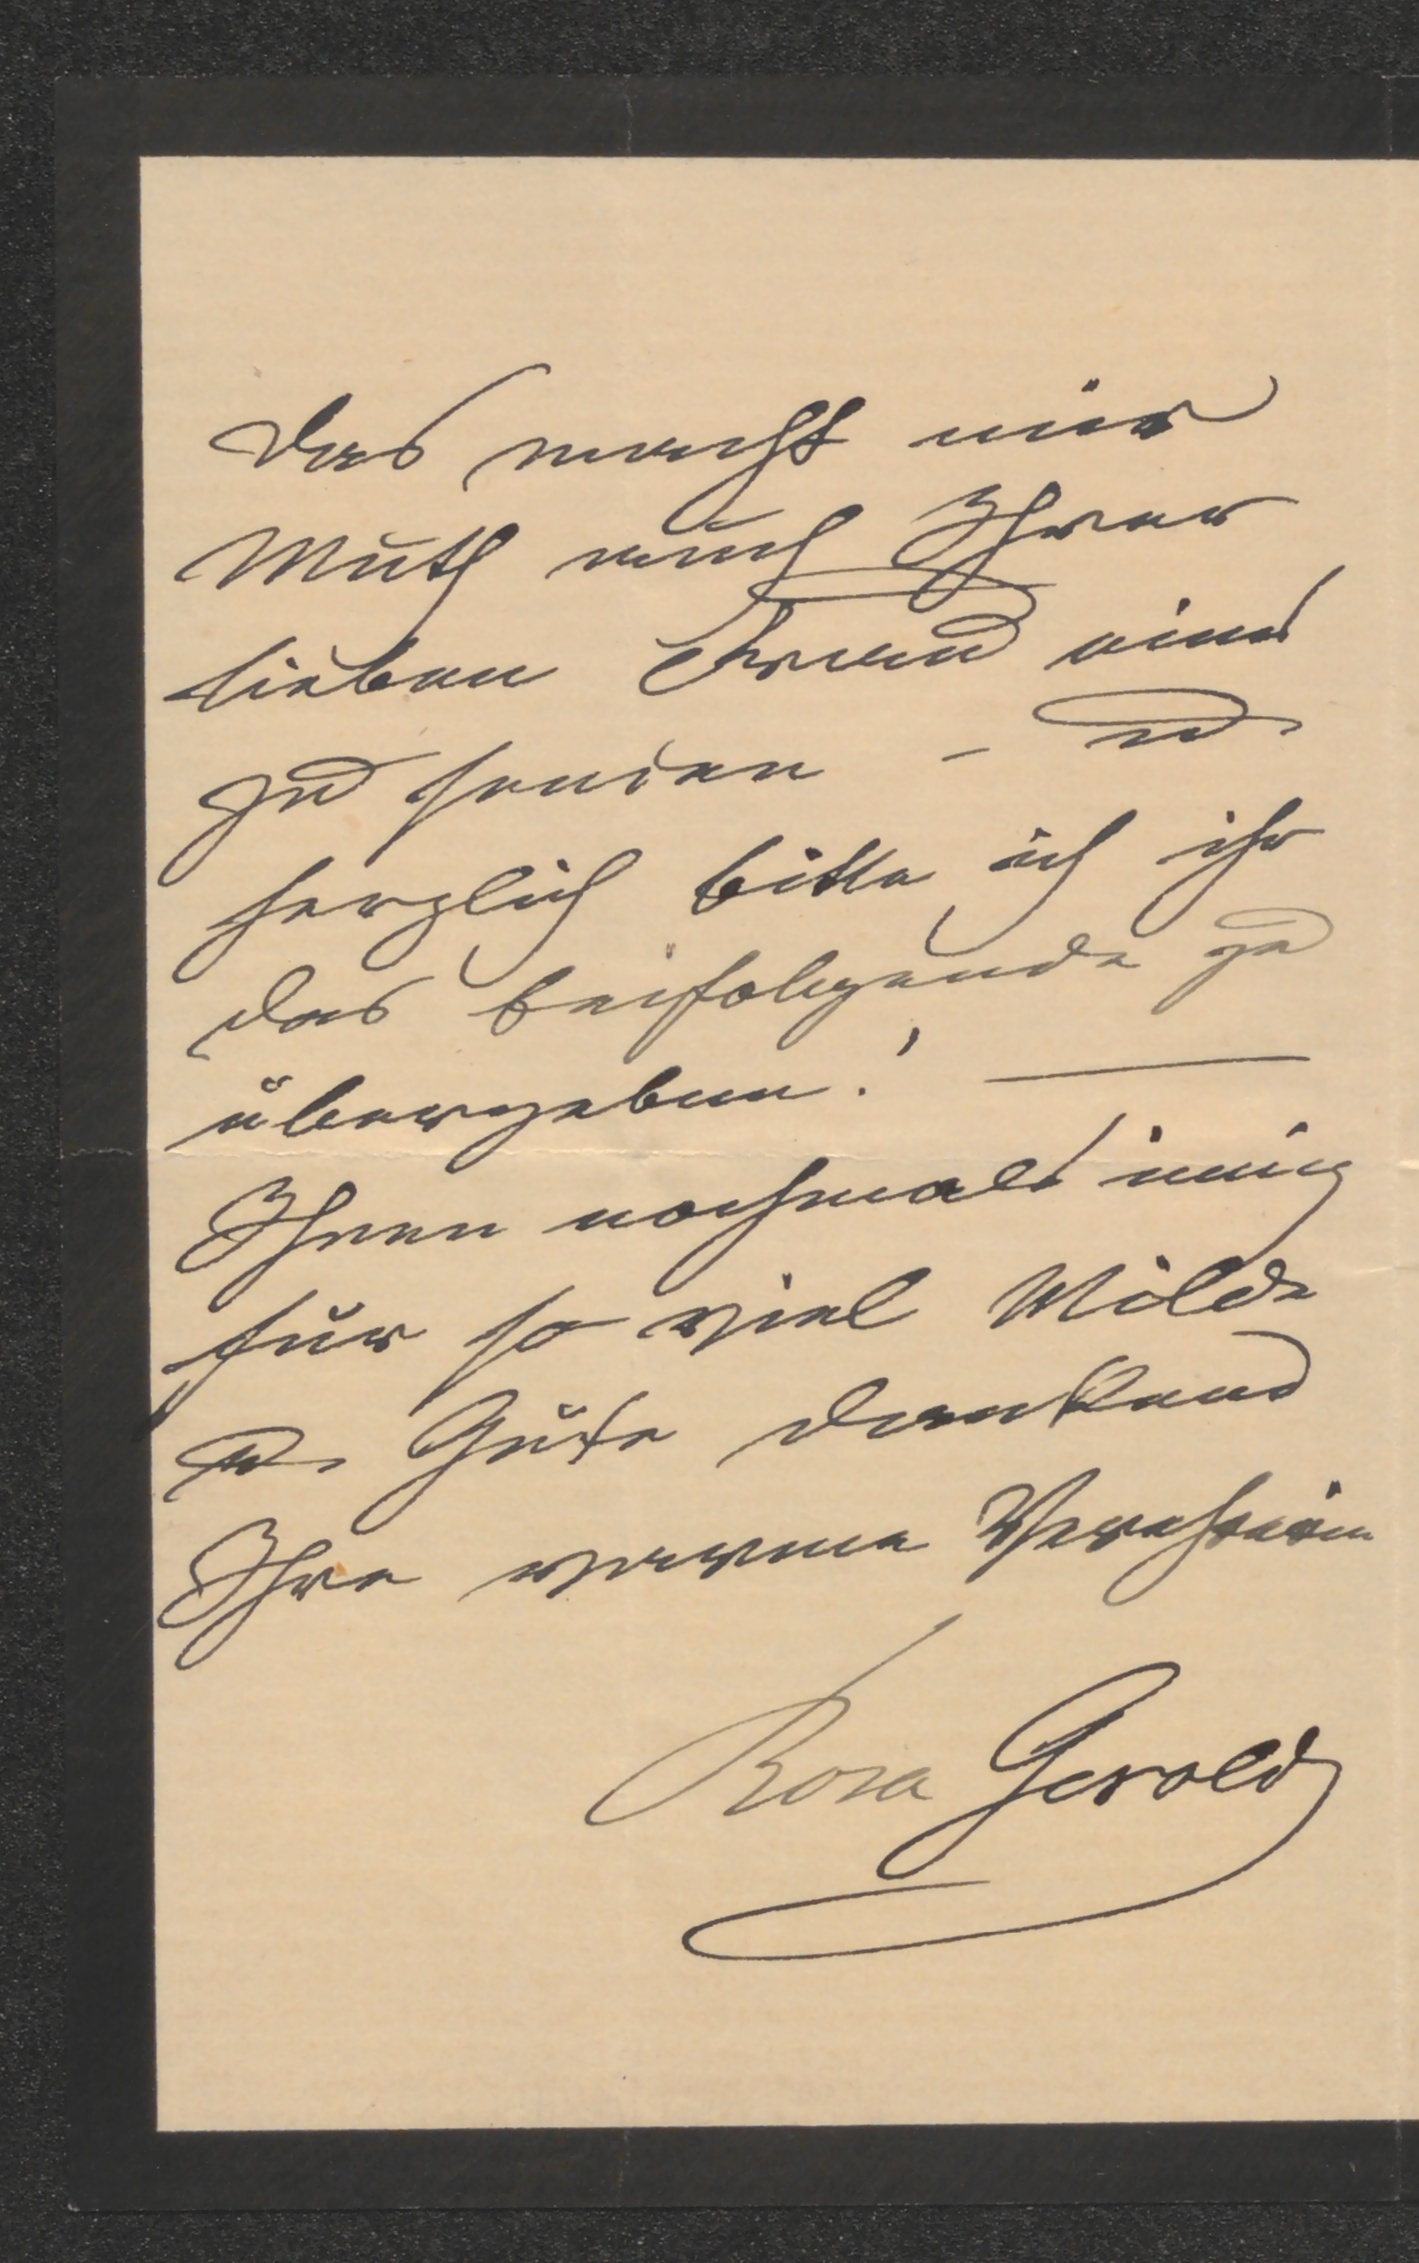 das macht mir
Muth auch Ihrer
lieben Freund eines
zu senden – u.
herzlich bitte ich ihr
das beifolgende zu
übergeben! —
Ihnen nochmals innig
für so viel Milde
u. Güte dankend
Ihre warme Verehrerin
Rosa Gerold